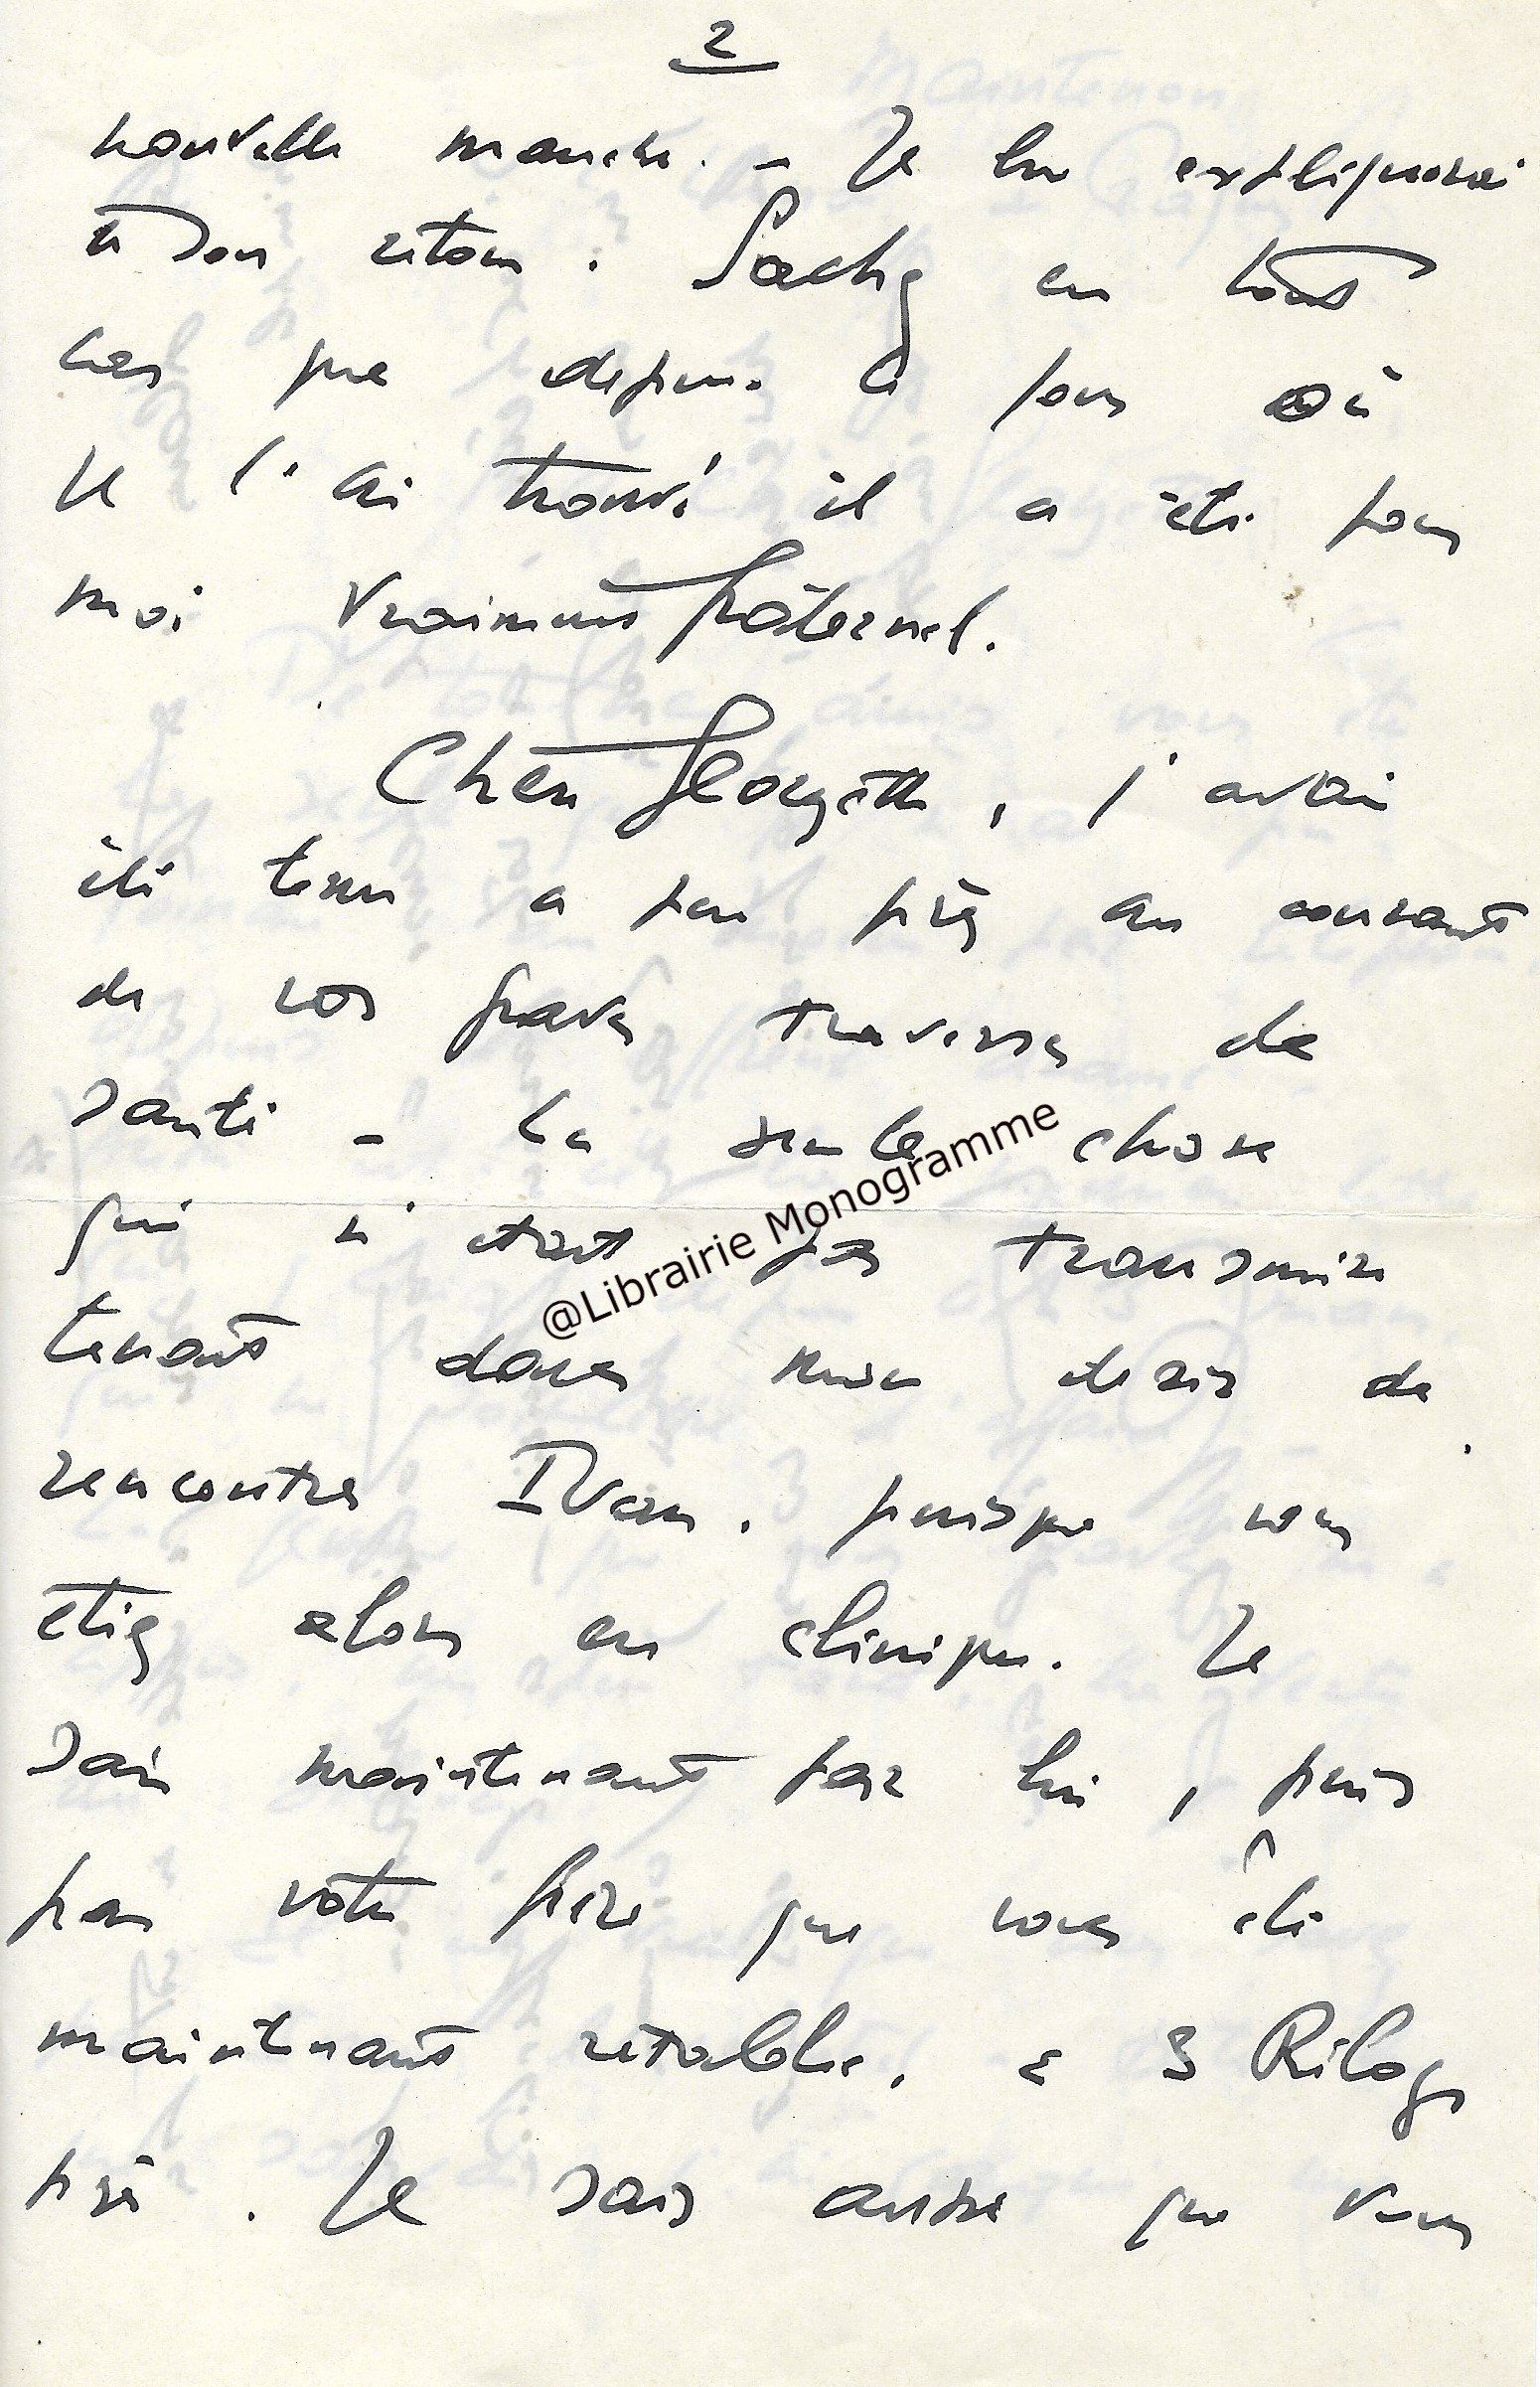 2
nouvelle manche. - Je lui expliquerai
à son retour. Sachez en tout
cas que depuis le jour où
je l'ai trouvé il a été pour
moi vraiment fraternel.
Chère Georgette, j'avais
été tenu à peu près au courant
de vos graves traverses de
santé - La seule chose
qui n'était pas transmise
tenant dans mon désir de
rencontrer Ivan, puisque vous
étiez alors en clinique. Je
sais maintenant par lui, puis
par votre frère que vous êtes
maintenant rétablie, à 3 Kilogs
près. Je sais aussi que vous
@Librairie Monogramme